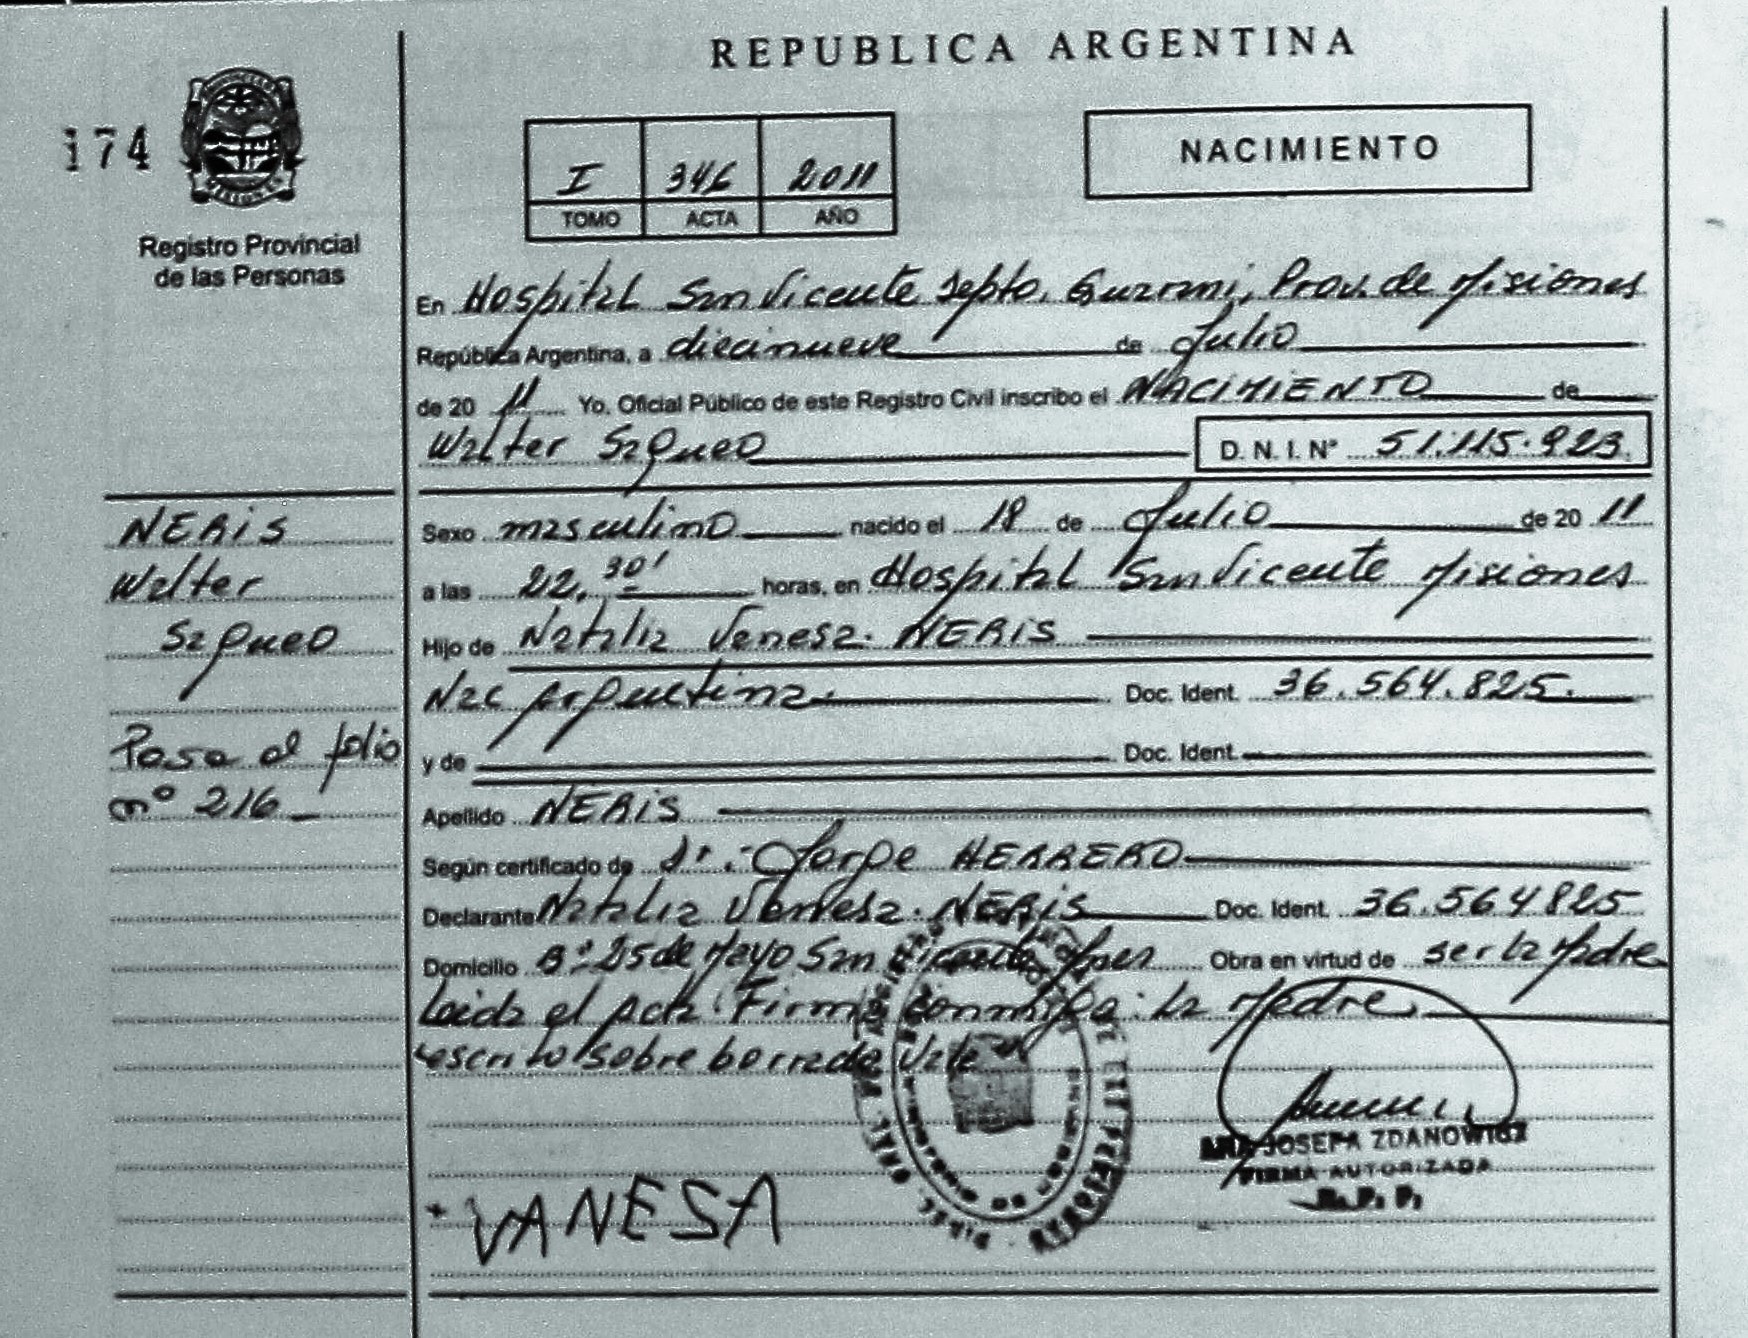 REPUBLICA ARGENTINA
174
Registro Provincial
de las Personas
I 346 2011
TOMO ACTA AÑO
NACIMIENTO
En Hospital San Vicente Depto. Guarani, Prov. de Misiones
República Argentina, a diecinueve de Julio
de 20 11 Yo. Oficial Público de este Registro Civil inscribo el NACIMIENTO de
Walter D. N. I. N° 51.115.923.
NERIS
Walter
Sexo masculino nacido el 18 de Julio de 20 11
a las 22,30' horas, en Hospital San Vicente Misiones
Hijo de Natalia Vanesa NERIS
Nac Argentina. Doc. Ident. 36.564.825.
y de Doc. Ident.
Pasa al folio
nº 216
Apellido NERIS
Según certificado de Dr. Jorge HERRERO
Declarante Natalia Vanesa NERIS Doc. Ident. 36.564825
Domicilio Bº 25 de Mayo San Vicente Mnes Obra en virtud de ser la Madre
Leida el acta Firma conmigo: la Madre
escrito sobre borrado Vale
JOSEFA ZDANOWICZ
FIRMA AUTORIZADA
R. P. P.
VANESA